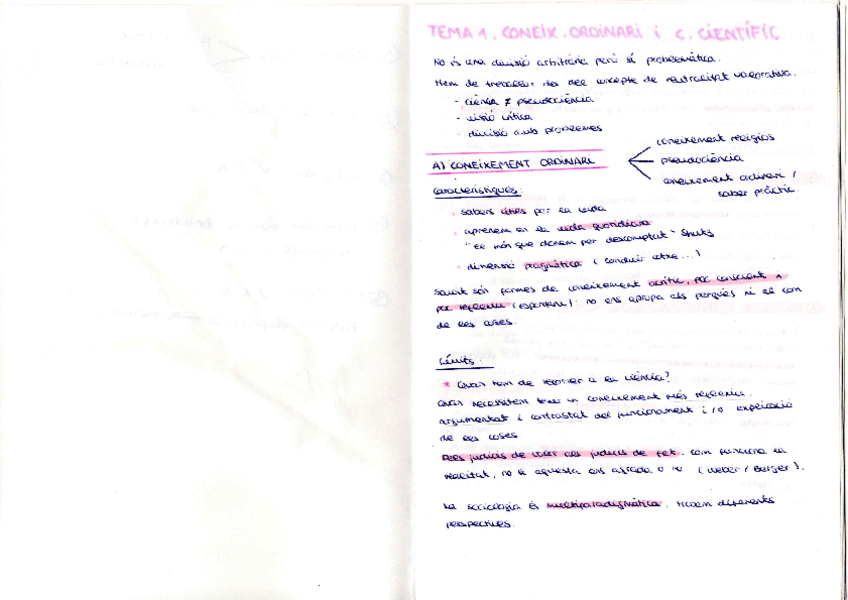 TEMA 1. CONEIX. ORDINARI i C. CIENTÍFIC
No és una divisió arbitrària però sí problemàtica.
Hem de treballar des del concepte de neutralitat valorativa.
- ciència ≠ pseudociència
- visió crítica
- divisió amb problemes
A) CONEIXEMENT ORDINARI
coneixement religiós
pseudociència
coneixement ordinari /
saber pràctic
Característiques:
· sabers útils per la vida
· aprenem en la vida quotidiana
"el món que donem per descomptat" Shutz
· dimensió pragmàtica (conduir cotxe...)
Sovint són formes de coneixement acrític, poc conscient i
poc reflexiu (espontani): no ens apropa als perquès ni al com
de les coses.
Límits.
* Quan hem de recórrer a la ciència?
Quan necessitem tenir un coneixement més reflexiu,
argumentat i contrastat del funcionament i/o explicació
de les coses
Dels judicis de valor als judicis de fet. com funciona la
realitat, no si aquesta ens agrada o no (Weber / Berger).
La sociologia és multiparadigmàtica, trobem diferents
perspectives.